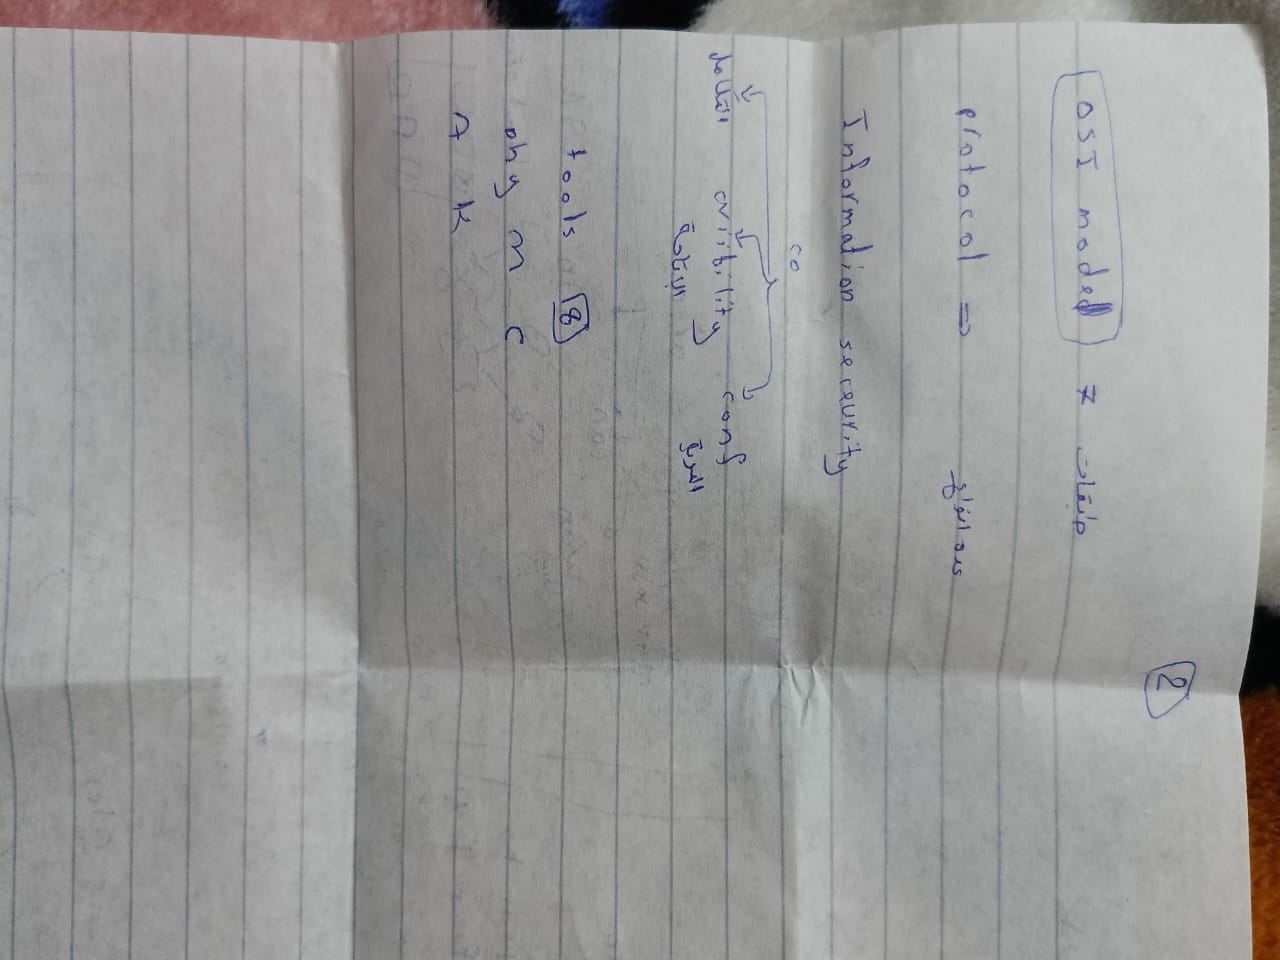 2
OSI model 7 طبقات
protocol ⇒ عدة انواع
Information seceurity
co
التكامل conf
الاتاحة السرية
tools 8
phy m c
A K